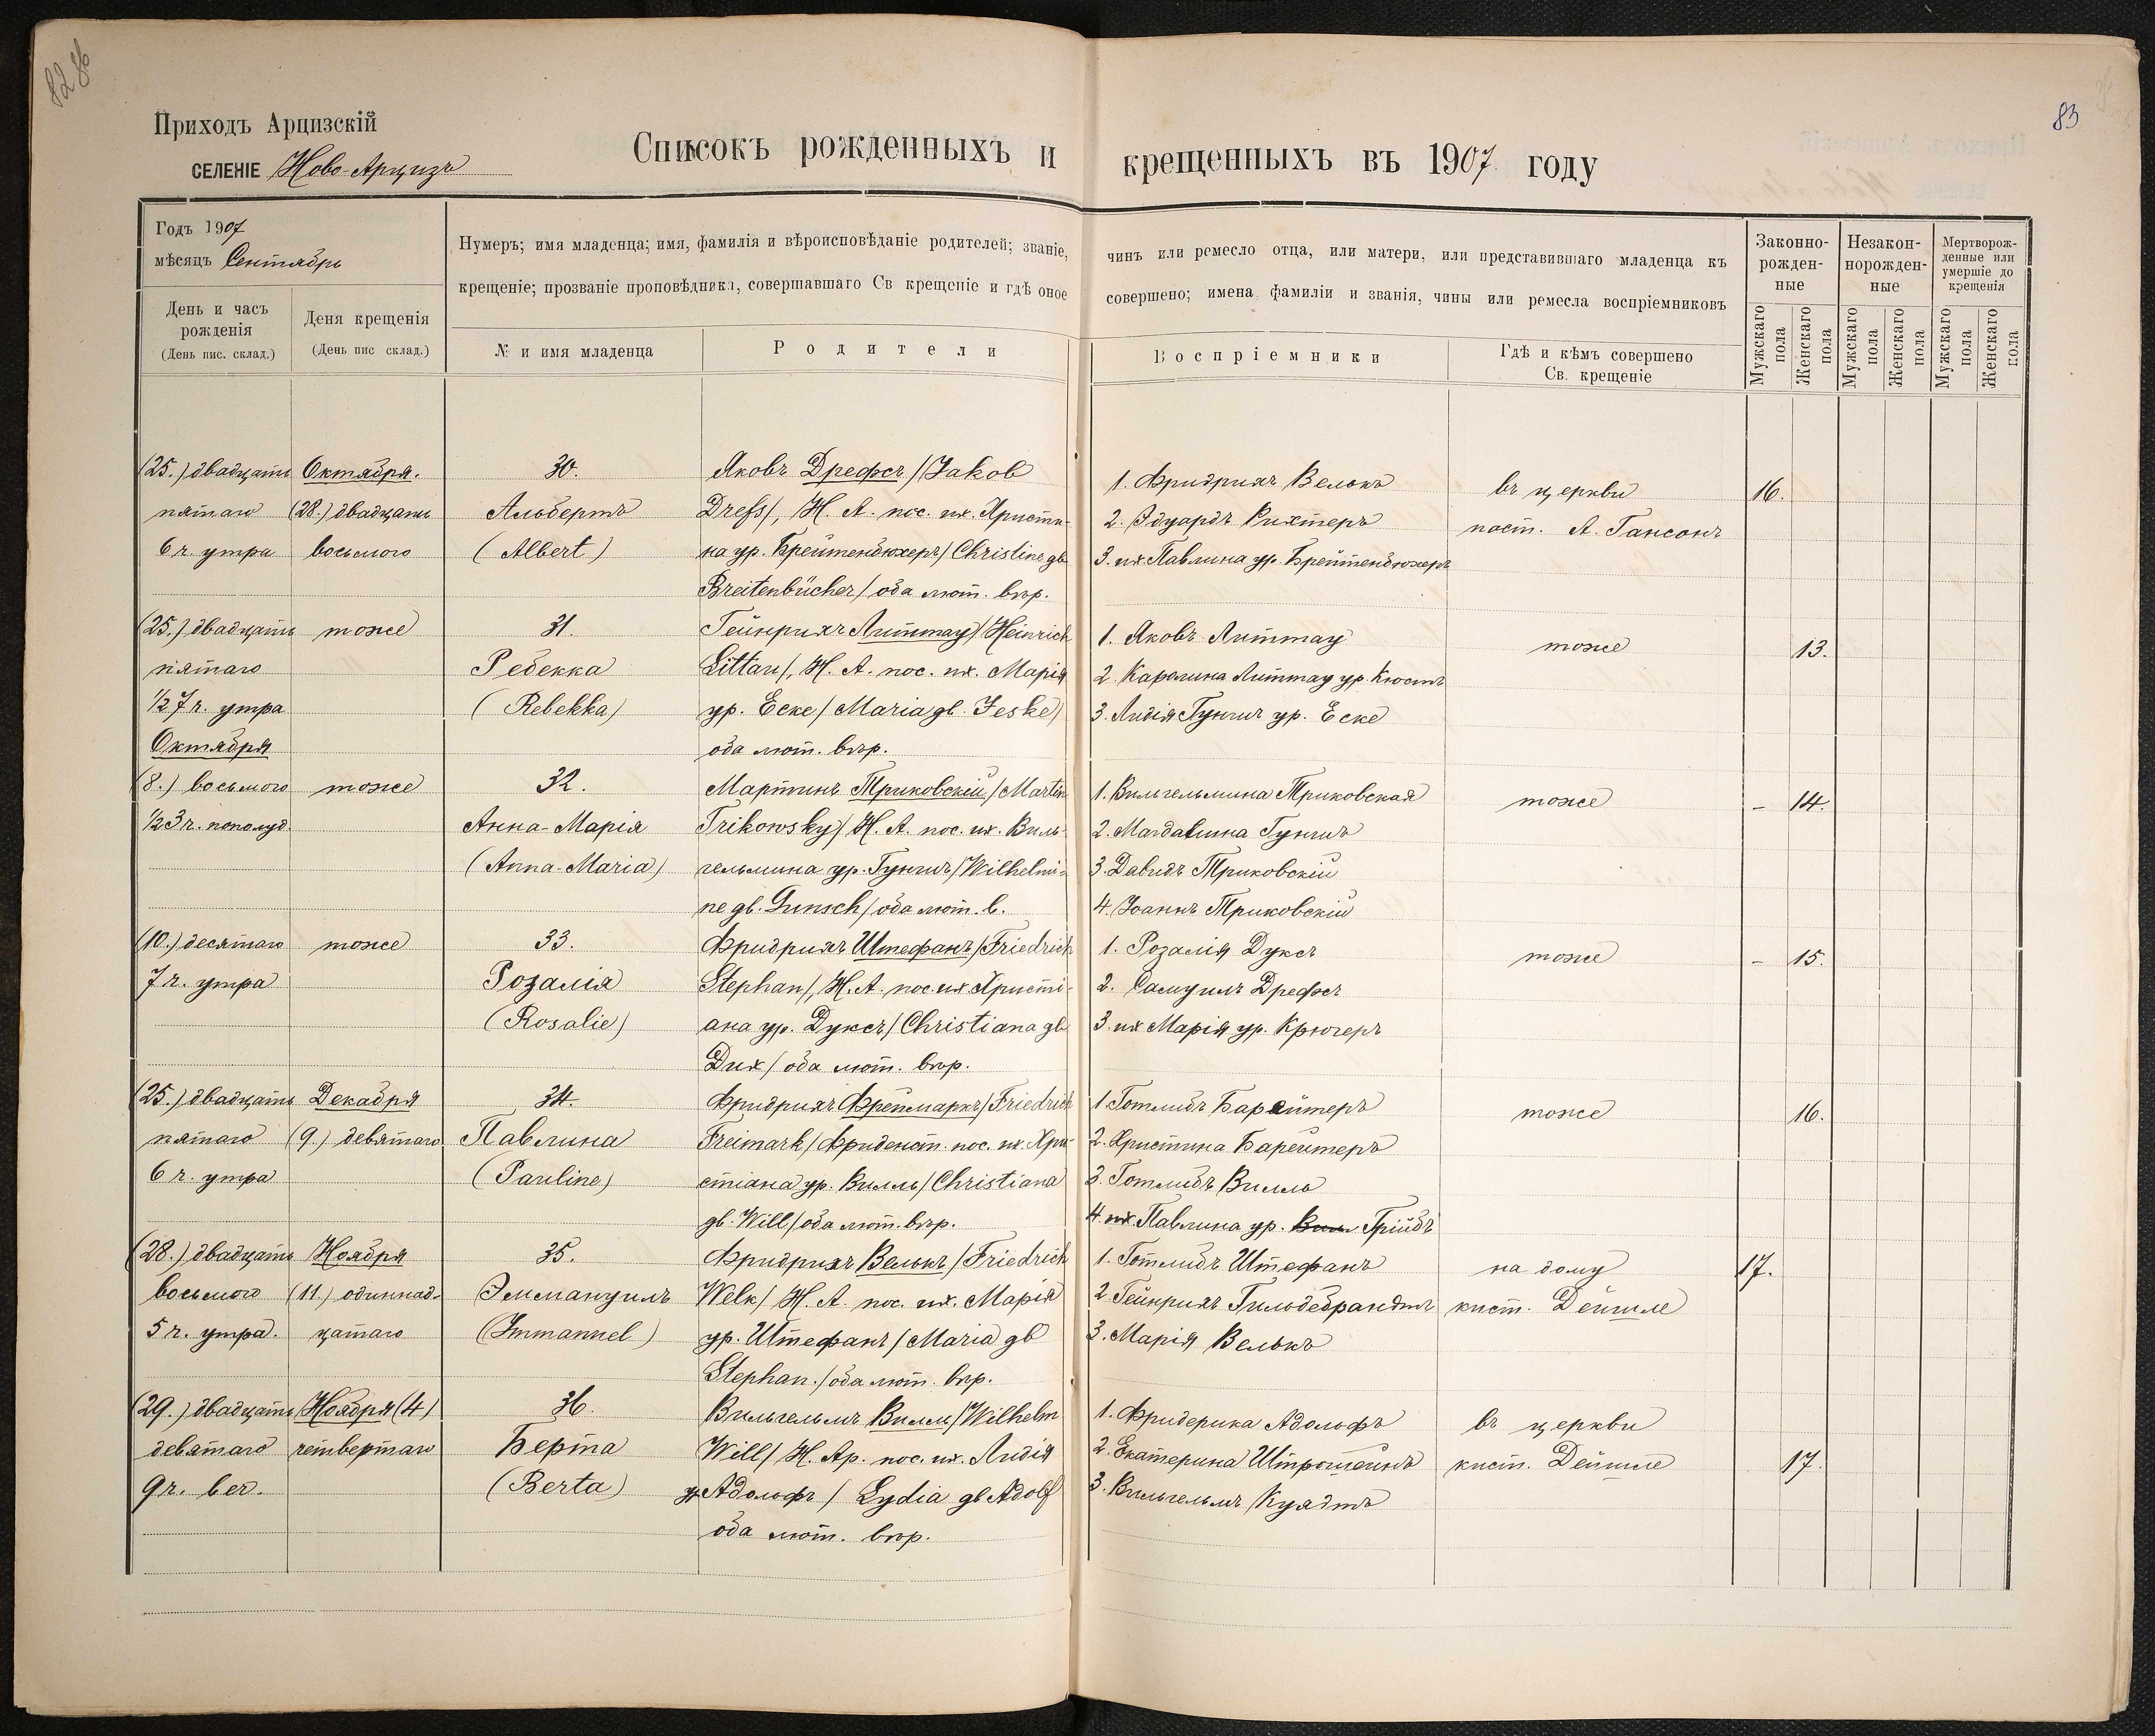 82 об
83
Приходъ Арцизскій
СЕЛЕНІЕ Ново-Арцизъ
Списокъ рожденныхъ и крещенныхъ въ 1907 году
Годъ 1907
мѣсяцъ Сентябрь
Нумеръ; имя младенца; имя, фамилія и вѣроисповѣданіе родителей; званіе, чинъ или ремесло отца, или матери, или представившаго младенца къ
крещеніе; прозваніе проповѣдника, совершавшаго Св крещеніе и гдѣ оное совершено; имена, фамиліи и званія, чины или ремесла воспріемниковъ
День и часъ рожденія (День пис. склад.)
Деня крещенія (День пис склад.)
№ и имя младенца
Родители
Воспріемники
Гдѣ и кѣмъ совершено Св. крещеніе
Законно-рожден-ные
Незакон-норожден-ные
Мертворож-денные или умершіе до крещенія
Мужскаго пола
Женскаго пола
Мужскаго пола
Женскаго пола
Мужскаго пола
Женскаго пола
(25.) двадцать Октября. 30. Яковъ Дрефсъ /Jakob 1. Фридрихъ Велькъ въ церкви 16.
пятаго (28.) двадцать Альбертъ Drefs/, Н. А. пос. их. Христи- 2. Эдуардъ Рихтеръ паст. А. Гансонъ
6 ч. утра восьмого (Albert) на ур. Брейтенбюхеръ/ Christine gb 3. их. Павлина ур. Брейтенбюхеръ
Breitenbücher/ оба лют. вѣр.
(25.) двадцать тоже 31. Гейнрихъ Литтау/ Heinrich 1. Яковъ Литтау тоже 13.
пятаго Ребекка Littau/, Н. А. пос. их. Марія 2. Каролина Литтау ур. Кюстъ
1/2 7 ч. утра (Rebekka) ур. Еске/ Maria gb. Jeske) 3. Лидія Гунчъ ур. Еске
Октября оба лют. вѣр.
(8.) восьмого тоже 32. Мартинъ Триковскій /Martin 1. Вильгельмина Триковская тоже – 14.
1/2 3 ч. пополуд. Анна-Марія Trikowsky/ Н. А. пос. их. Виль- 2. Магдалина Гунчъ
(Anna-Maria) гельмина ур. Гунчъ/ Wilhelmi- 3. Давидъ Триковскій
ne gb. Gunsch/ оба лют. в. 4. Іоаннъ Триковскій
(10.) десятаго тоже 33. Фридрихъ Штефанъ/ Friedrich 1. Розалія Дуксъ тоже – 15.
7 ч. утра Розалія Stephan/, Н. А. пос. их. Христі- 2. Самуилъ Дрефсъ
(Rosalie) ана ур. Дуксъ/ Christiana gb 3. их Марія ур. Крюгеръ
Dux/ оба лют. вѣр.
(25.) двадцать Декабря 34. Фридрихъ Фреймаркъ/ Friedrich 1. Готлибъ Барейтеръ тоже 16.
пятаго (9.) девятаго Павлина Freimark/ Фриденст. пос. их. Хри- 2. Христина Барейтеръ
6 ч. утра (Pauline) стіана ур. Вилль/ Christiana 3. Готлибъ Вилль
gb. Will/ оба лют. вѣр. 4. их. Павлина ур. Грійбъ
(28.) двадцать Ноября 35. Фридрихъ Велькъ/ Friedrich 1. Готлибъ Штефанъ на дому 17.
восьмого (11.) одиннад- Эммануилъ Welk/ Н. А. пос. их. Марія 2. Гейнрихъ Гильдебрандтъ кист. Дейшле
5 ч. утра. цатаго (Immanuel) ур. Штефанъ/ Maria gb 3. Марія Велькъ
Stephan./ оба лют. вѣр.
(29.) двадцать Ноября (4) 36. Вильгельмъ Вилль/ Wilhelm 1. Фридерика Адольфъ въ церкви
девятаго четвертаго Берта Will/ Н. Ар. пос. их. Лидія 2. Екатерина Штрошейнъ кист. Дейшле 17.
9 ч. веч. (Berta) ур Адольфъ/ Lydia gb Adolf 3. Вильгельмъ Куядтъ
оба лют. вѣр.